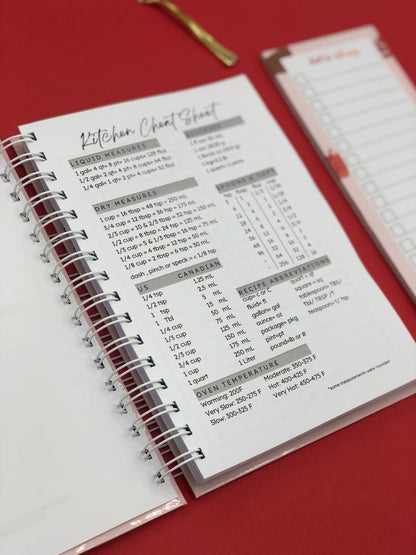 Kitchen Cheat Sheet
LIQUID MEASURES
1 gal= 4 qt= 8 pt= 16 cups= 128 floz
1/2 gal= 2 qt= 4 pt= 8 cups= 64 floz
1/4 gal= 1 qt= 2 pt= 4 cups= 32 floz
DRY MEASURES
1 cup = 16 tbsp = 48 tsp = 250 mL
3/4 cup = 12 tbsp = 36 tsp = 175 mL
2/3 cup = 10 & 2/3 tbsp = 32 tsp = 150 mL
1/2 cup = 8 tbsp = 24 tsp = 125 mL
1/3 cup = 5 & 1/3 tbsp = 16 tsp = 75 mL
1/4 cup = 4 tbsp = 12 tsp = 50 mL
1/8 cup = 2 tbsp = 6 tsp = 30 mL
dash, pinch or speck = < 1/8 tsp
SPOONS & CUPS
tsp tbsp floz cup
US CANADIAN
1/4 tsp 1.25 mL
1/2 tsp 2.5 mL
1 tsp 5 mL
1 Tbl 15 mL
1/4 cup 50 mL
1/3 cup 75 mL
1/2 cup 125 mL
2/3 cup 150 mL
3/4 cup 175 mL
1 cup 250 mL
1 quart 1 Liter
RECIPE ABBREVIATIONS
cup= c or C
fluid= fl
gallon= gal
ounce= oz
package= pkg
pint=pt
pound=lb or #
quart = qt
square = sq
tablespoon= TBL/
Tbl/ TBSP /T
teaspoon= t/ tsp
OVEN TEMPERATURE
Warming: 200F
Very Slow: 250-275 F
Slow: 300-325 F
Moderate: 350-375 F
Hot: 400-425 F
Very Hot: 450-475 F
*some measurements were rounded